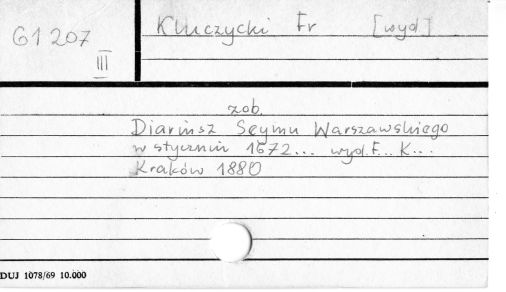 61207
III
Kluczycki Fr [wyd]
zob.
Diariusz Seymu Warszawskiego
w styczniu 1672... wyd. F... K...
Kraków 1880
DUJ 1078/69 10.000